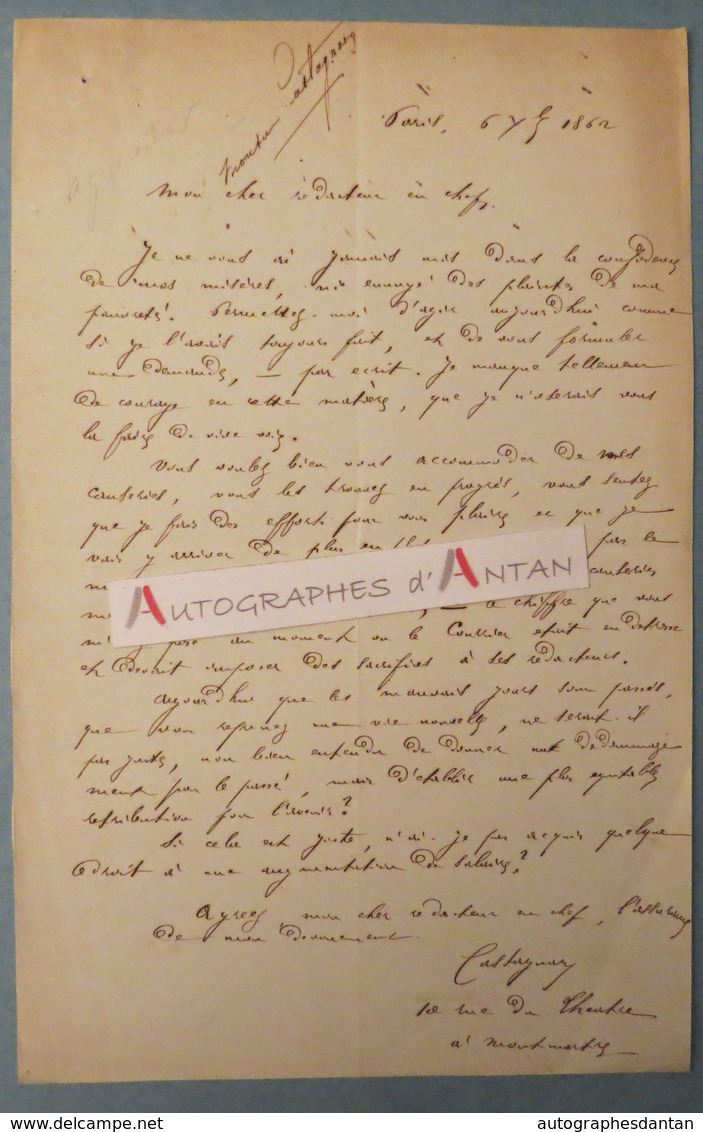 Castagnary
Paris, 6 Xbre 1862
Mon cher rédacteur en chef,
Je ne vous ai jamais mis dans la confidence
de mes misères, ni ennuyé des plaintes de ma
pauvreté. Permettez-moi d'agir aujourd'hui comme
si je l'avais toujours fait, et de vous formuler
une demande, — par ecrit. Je manque tellement
de courage en cette matière, que je n'oserais vous
la faire de vive voix.
Vous voulez bien vous accommoder de mes
causeries, vous les trouvez en progrès, vous sentez
que je fais des efforts pour vous plaire et que je
vais y arriver de plus en plus par la
causeries
— le chiffre que vous
au moment où le Courrier etait en detresse
et devait imposer des sacrifices à ses rédacteurs.
Aujourd'hui que les mauvais jours sont passés,
que vous reprenez une vie nouvelle, ne serait-il
pas juste, non bien entendu de donner un dédommage
ment pour le passé, mais d'établir une plus equitable
retribution pour l'avenir?
Si cela est juste, n'ai-je pas acquis quelque
droit à une augmentation de salaire?
Agreez, mon cher redacteur en chef, l'assurance
de mon devouement.
Castagnary
10 rue du Theatre
à Montmartre
AUTOGRAPHES d'ANTAN
delcampe.net
autographesdantan